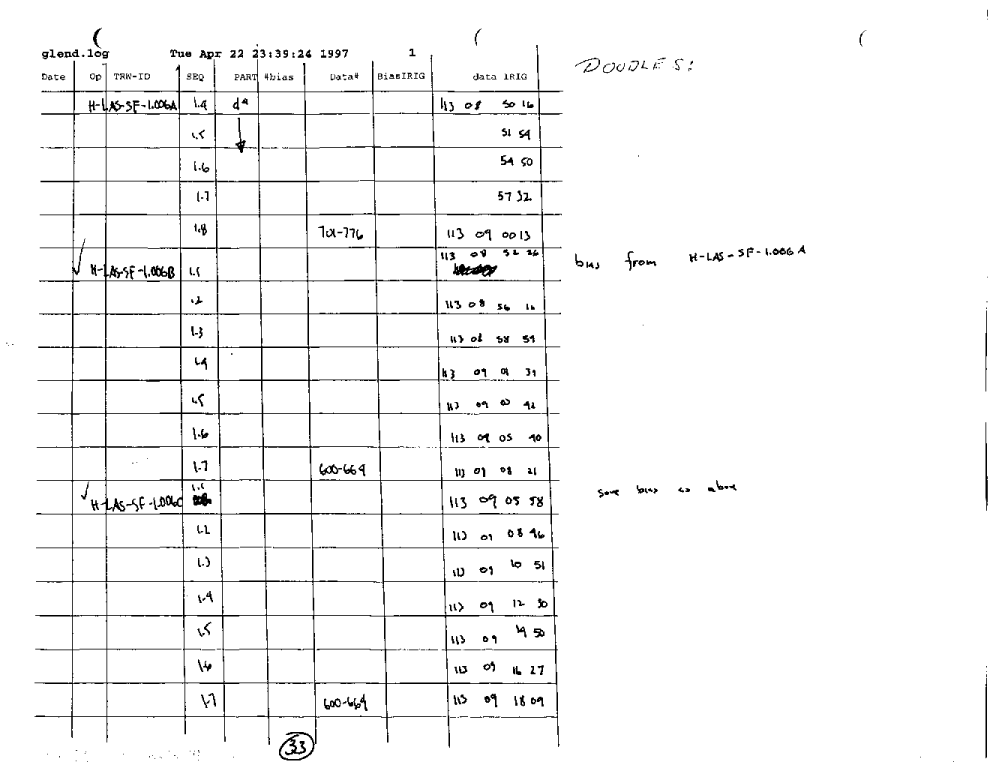 glend.log Tue Apr 22 23:39:24 1997 1
DOODLES:
Date Op TRW-ID SEQ PART #bias Data# BiasIRIG data IRIG
H-LAS-SF-1.006A 1.4 d4 113 08 50 16
1.5 51 54
1.6 54 50
1.7 57 32
1.8 701-776 113 09 00 13
113 08 52 26
H-LAS-SF-1.006B 1.1 bias from H-LAS-SF-1.006A
1.2 113 08 56 16
1.3 113 08 58 54
1.4 113 09 01 31
1.5 113 09 03 42
1.6 113 09 05 40
1.7 600-664 113 09 08 21
H-LAS-SF-1.006C 113 09 05 58 same bias as above
1.2 113 09 08 46
1.3 113 09 10 51
1.4 113 09 12 30
1.5 113 09 14 50
1.6 113 09 16 27
1.7 600-664 113 09 18 09
33